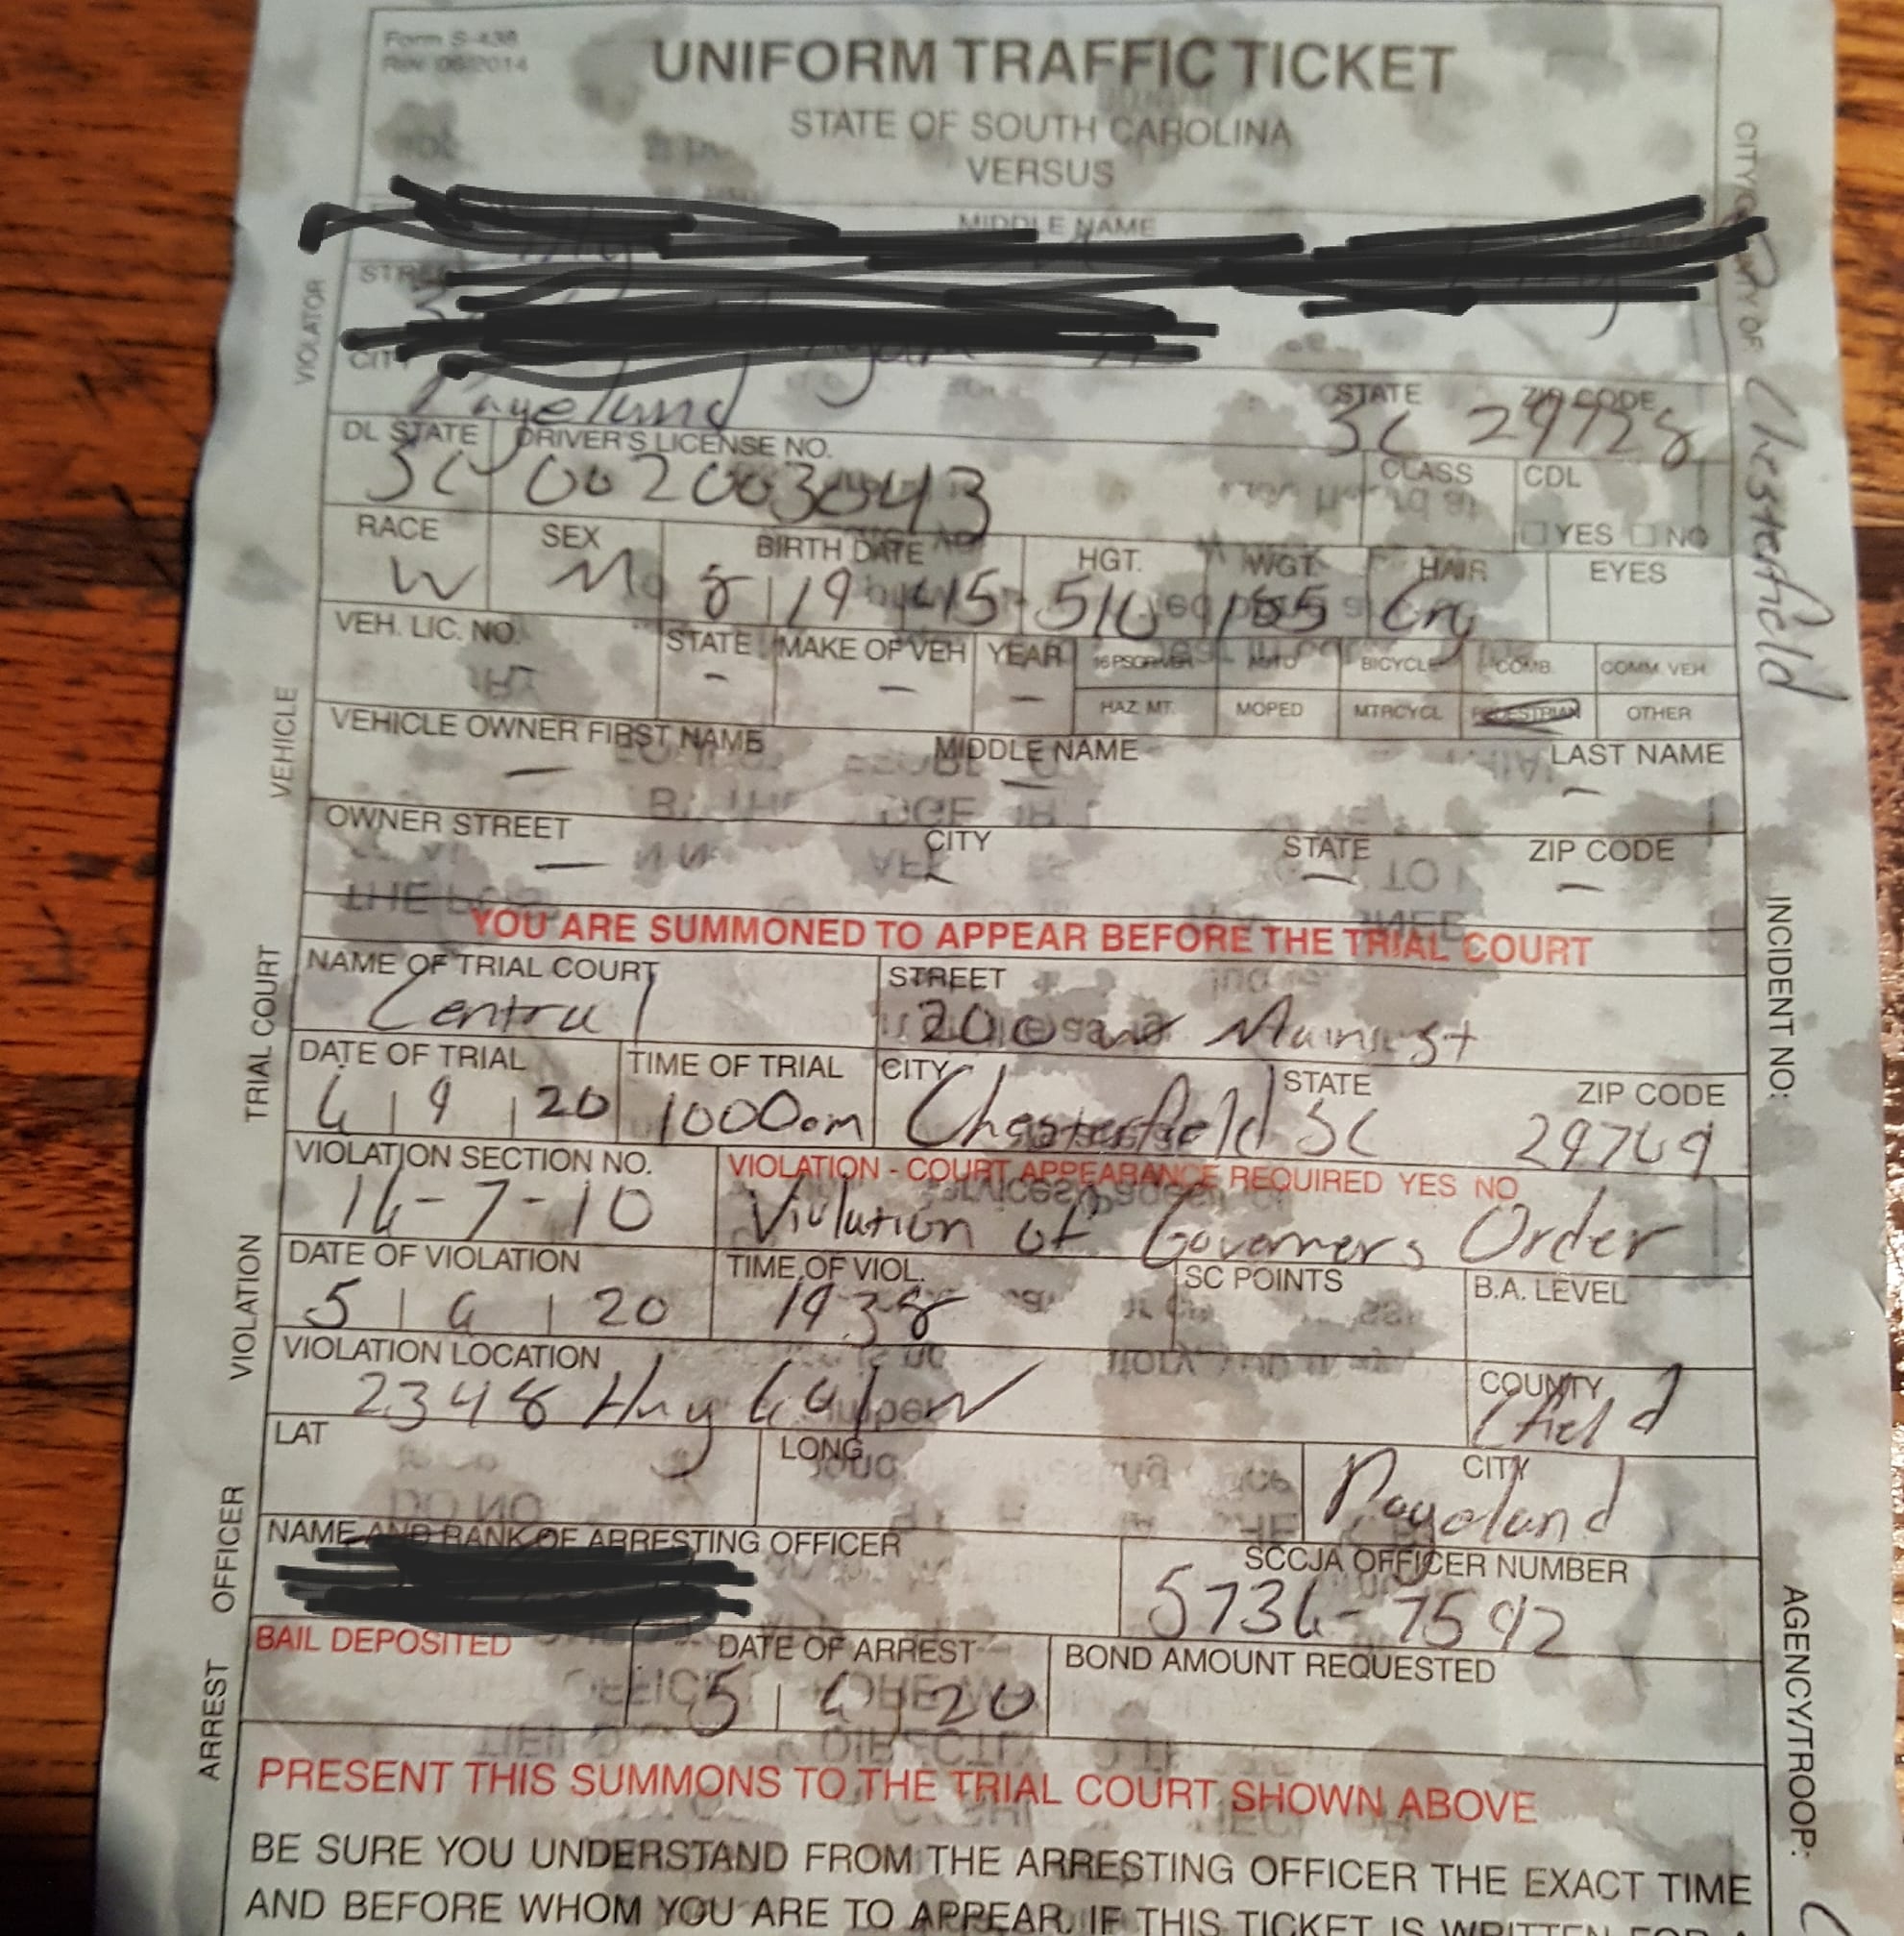 Form S-438
Rev. 06/2014
UNIFORM TRAFFIC TICKET
STATE OF SOUTH CAROLINA
VERSUS
MIDDLE NAME
VIOLATOR
CITY
Pageland
STATE ZIP CODE
SC 29728
DL STATE DRIVER'S LICENSE NO. CLASS CDL
SC 002003043
YES NO
RACE SEX BIRTH DATE HGT. WGT. HAIR EYES
W M 8 19 45 510 165 Gry
VEH. LIC. NO. STATE MAKE OF VEH YEAR AUTO BICYCLE COMB. COMM. VEH.
- - -
HAZ. MT. MOPED MTRCYCL PEDESTRIAN OTHER
VEHICLE
VEHICLE OWNER FIRST NAME MIDDLE NAME LAST NAME
- - -
OWNER STREET CITY STATE ZIP CODE
- - - -
YOU ARE SUMMONED TO APPEAR BEFORE THE TRIAL COURT
TRIAL COURT
NAME OF TRIAL COURT STREET
Central 200 Main st
DATE OF TRIAL TIME OF TRIAL CITY STATE ZIP CODE
6 9 20 1000am Chesterfield SC 29709
VIOLATION
VIOLATION SECTION NO. VIOLATION - COURT APPEARANCE REQUIRED YES NO
16-7-10 Violation of Governers Order
DATE OF VIOLATION TIME OF VIOL. SC POINTS B.A. LEVEL
5 6 20 1938
VIOLATION LOCATION COUNTY
2348 Hwy W Cfield
LAT LONG CITY
Pageland
OFFICER
NAME AND RANK OF ARRESTING OFFICER SCCJA OFFICER NUMBER
5736-7592
ARREST
BAIL DEPOSITED DATE OF ARREST BOND AMOUNT REQUESTED
5 6 20
PRESENT THIS SUMMONS TO THE TRIAL COURT SHOWN ABOVE
BE SURE YOU UNDERSTAND FROM THE ARRESTING OFFICER THE EXACT TIME
AND BEFORE WHOM YOU ARE TO APPEAR. IF THIS TICKET IS WRITTEN FOR A
Chesterfield
INCIDENT NO:
AGENCY/TROOP: